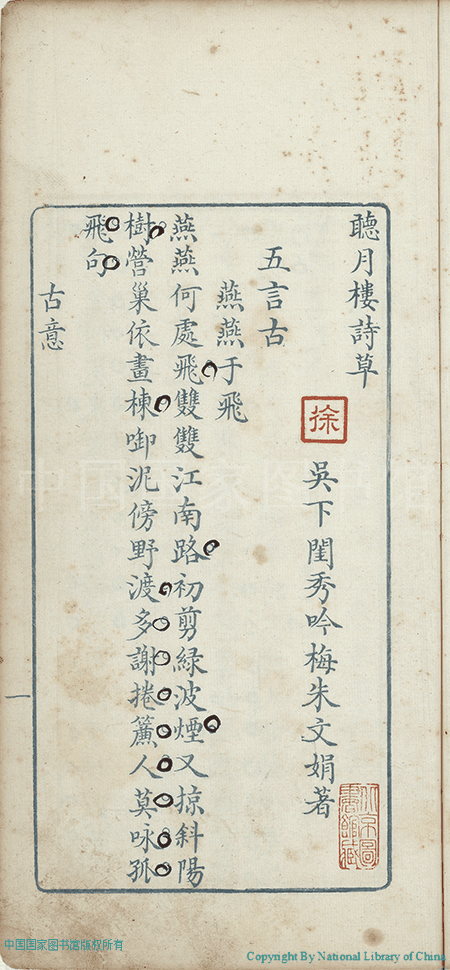 聽月樓詩草
徐
吳下閨秀吟梅朱文娟著
五言古
燕燕于飛
燕燕何處飛雙雙江南路初剪綠波煙又掠斜陽
樹營巢依畫棟啣泥傍野渡多謝捲簾人莫咏孤
飛句
古意
一
北京圖書館藏
中国国家图书馆
中国国家图书馆版权所有
Copyright By National Library of China